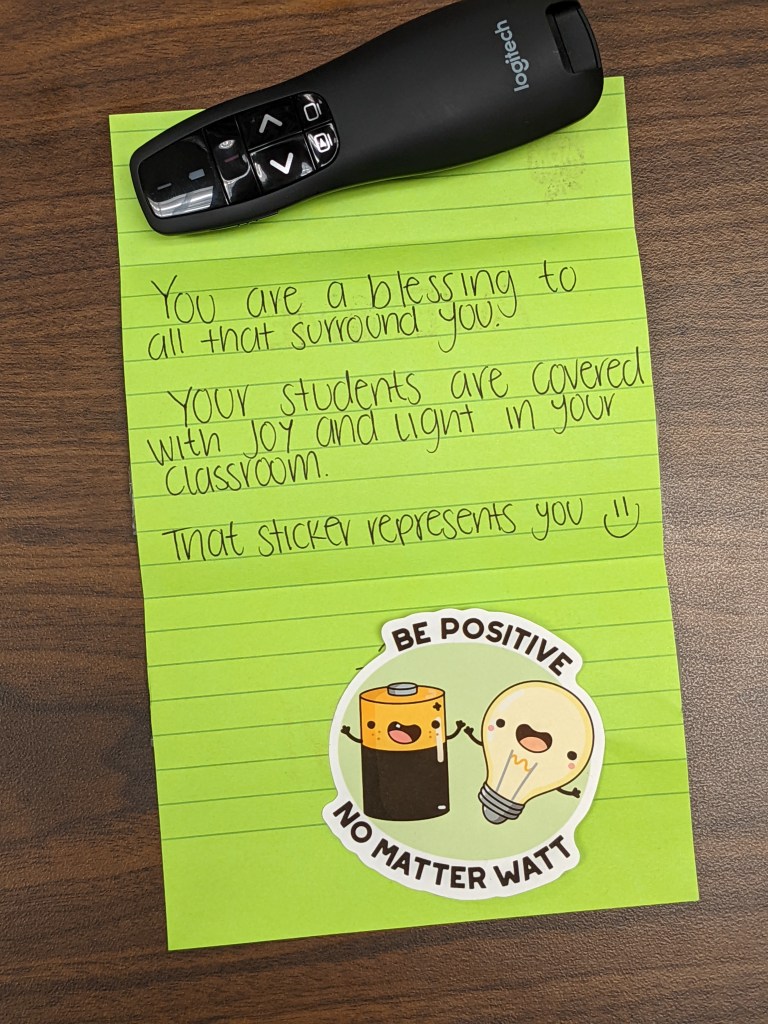 logitech
You are a blessing to
all that surround you.
Your students are covered
with Joy and Light in your
classroom.
That sticker represents you
BE POSITIVE
NO MATTER WATT